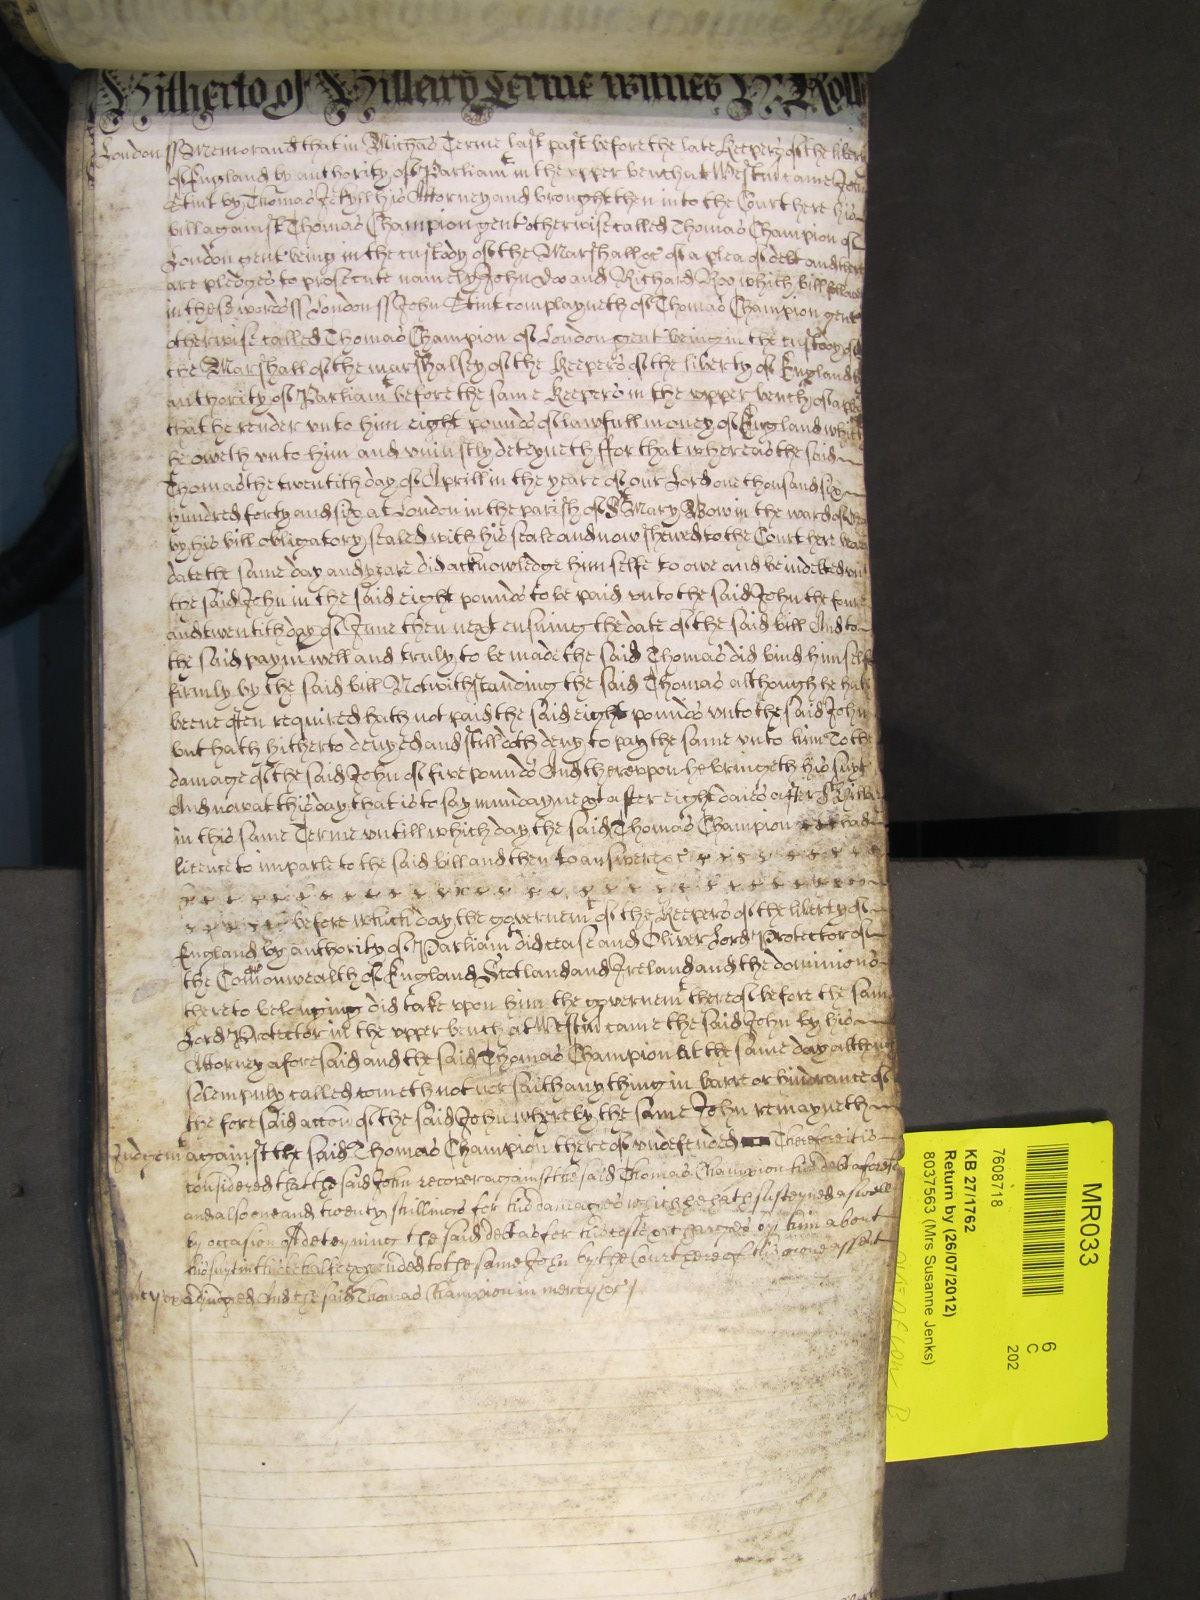 Hitherto of Hillary Terme witnes H: Rolle
London ss Memorand that in Michās Terme last past before the late keepers of the libert
of England by authority of Parliamt in the vpper bench at Westm came John
Stint by Thomas Jekyll his Attorney and brought then into the Court here his
bill against Thomas Champion gent otherwise called Thomas Champion of
London gent being in the custody of the Marshall &c of a plea of debt and there
are pledges to prosecute namely John Doo and Richard Roo which bill followe
in these words ss London ss John Stint complayneth of Thomas Champion gent
otherwise called Thomas Champion of London gent being in the custody of
the Marshall of the marshalsey of the keepers of the liberty of England b
authority of Parliamt before the same keepers in the vpper bench of a plea
that he render vnto him eight pounds of lawfull money of England which
he oweth vnto him and vniustly deteyneth ffor that whereas the said
Thomas the twentith day of Aprill in the yeare of our Lord one thousand six
hundred forty and six at London in the parish of St Mary Bow in the ward of
by his bill obligatory sealed with his seale and now shewed to the Court here beari
date the same day and yeare did acknowledge himselfe to owe and be indebted vn
the said John in the said eight pounds to be paid vnto the said John the foure
and twentith day of June then next ensuing the date of the said bill And to
the said paymt well and truly to be made the said Thomas did bind himself
firmly by the said bill Notwithstanding the said Thomas although he hath
beene often required hath not paid the said eight pounds vnto the said John
but hath hitherto denyed and still doth deny to pay the same vnto him To the
damage of the said John of five pounds And therevpon he bringeth his suyt
And now at this day that is to say munday next after eight daies of St Hillar
in this same Terme vntill which day the said Thomas Champion had
licence to imparle to the said bill and then to answere &c
before which day the governemt of the keepers of the liberty of
England by authority of Parliamt did cease and Oliver Lord Protector of
the Comonwealth of England Scotland and Ireland and the dominions
thereto belonging did take vpon him the governemt thereof before the same
Lord Protector in the vpper bench at Westm came the said John by his
Attorney aforesaid and the said Thomas Champion At the same day althoug
solempnly called cometh not nor saith any thing in barre or hindrance of
the foresaid accon of the said John whereby the same John remayneth
Judgemt against the said Thomas Champion thereof vndefended Therefore it is
considered that the said John recover against the said Thomas Champion his debt aforesd
and also one and twenty shillings for his damages which he hath susteyned aswell
by occasion of deteyning the said debt as for his costs & charges by him about
his suyt in this behalfe expended to the same John by the Court here of his owne assent
mercy &c adiudged And the said Thomas Champion in mercy &c
MR033
7608718
KB 27/1762
Return by (26/07/2012)
8037563 (Mrs Susanne Jenks)
6
C
202